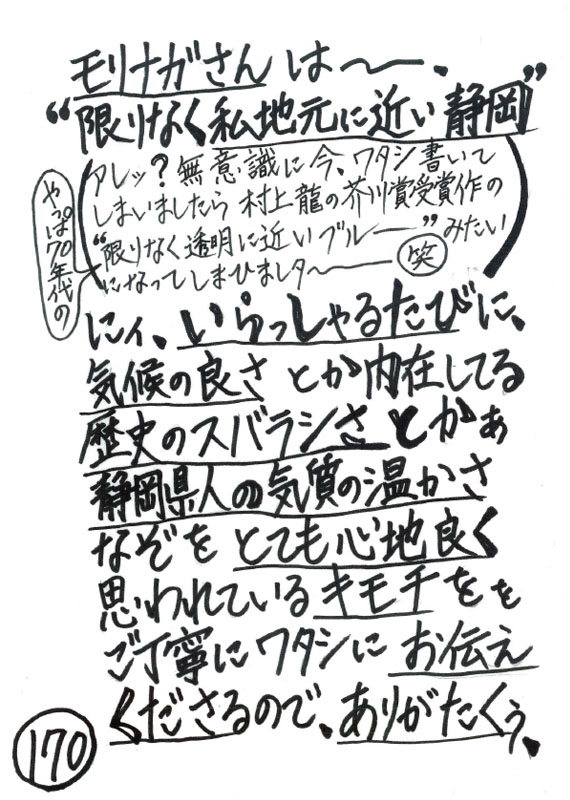 モリナガさんは〜ー、
“限りなく私地元に近い静岡”
(アレッ?無意識に今、ワタシ書いて
しまいましたら村上龍の芥川賞受賞作の
“限りなく透明に近いブルー”みたい
になってしまひましタ〜ー 笑)
やっぱ70年代の
にィ、いらっしゃるたびに、
気候の良さとか内在してる
歴史のスバラシさとかぁ
静岡県人の気質の温かさ
なぞをとても心地良く
思われているキモチをを
ご丁寧にワタシにお伝え
くださるので、ありがたくぅ、
170